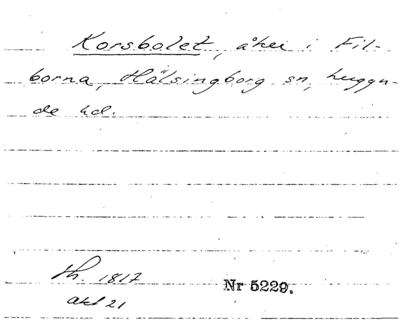 Korsbolet, åker i Fil-
borna, Hälsingborg sn, Luggu-
de hd.
Sth. 1817
Nr 5229.
akt 21